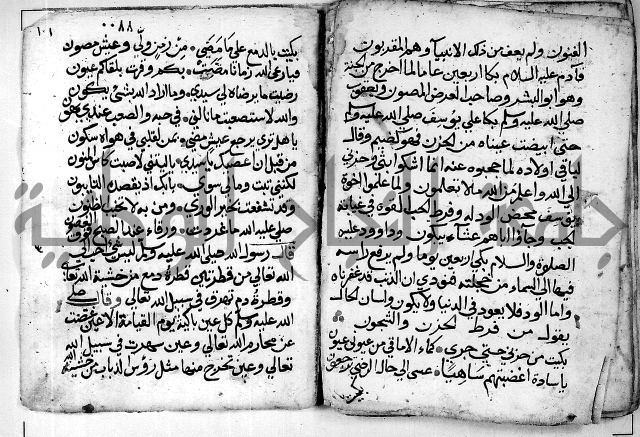 الفنون ولم يعف من ذلك الانبيا وهم المقربون
فآدم عليه السلام بكا اربعين عاما لما اخرج من الجنة
وهو ابو البشر وصاحب العرض المصون ويعقوب
صلى الله عليه وسلم بكا على يوسف صلى الله عليه وسلم
حتى ابيضت عيناه من الحزن فهو كظيم وقال
لباقي اولاده لما حجبوه عنه انما اشكوا بثي وحزني
الى الله واعلم من الله ما لا تعلمون ولما علموا اخوة
يوسف الوداله وفرط الحب القوه في غيابة
الجب وجاؤا اباهم عشاء يبكون وداوود عليه
الصلوة والسلام بكى اربعين يوما ولم يرفع راسه
فيها الى السماء من خجلته فنودي ان الذنب قد غفرناه
واما الود فلا يعود في الدنيا ولا يكون ولسان الحال
يقول من فرط الحزن والشجون
بكيت من حزني حتى جرى كماء الاماقي من عيوني عيون
يا سادة اغضبتهم ساهيا عسى الى حال الرضى يرجعون
٠٠٨٨
١٠١
بكيت بالدمع على ما مضى من زمن ولى وعيش مصون
فيا رعى الله زمانا مضى بكم وقرت بلقاكم عيون
رضيت ما يرضاه لي سيدي وما اراد الله بشئ يكون
والله لا استصعبت ما نالني في حبه والصعب عندي يهون
يا هل ترى يرجع عيش مضى ومن لقلبي في هواه سكون
من قبل ان اعصيك يا سيدي يا ليتني لاقيت كاس المنون
لكنني تبت وما لي سوى بابك اذ يقصده التايبون
وقد تشفعت بخير الورى ومن به لا تخيب الظنون
صلى عليه الله ما غردت ورقاء عند الصبح فوق الغصون
قال رسول الله صلى الله عليه وسلم ليس شئ احب الى
الله تعالى من قطرتين قطرة دمع من خشية الله تعالى
وقطرة دم تهرق في سبيل الله تعالى وقال صلى
الله عليه وسلم كل عين باكية يوم القيامة الا عين غضت
عن محارم الله تعالى وعين سهرت في سبيل الله
تعالى وعين تخرج منها مثل رؤس الذباب من خشية
جامعة النجاح الوطنية